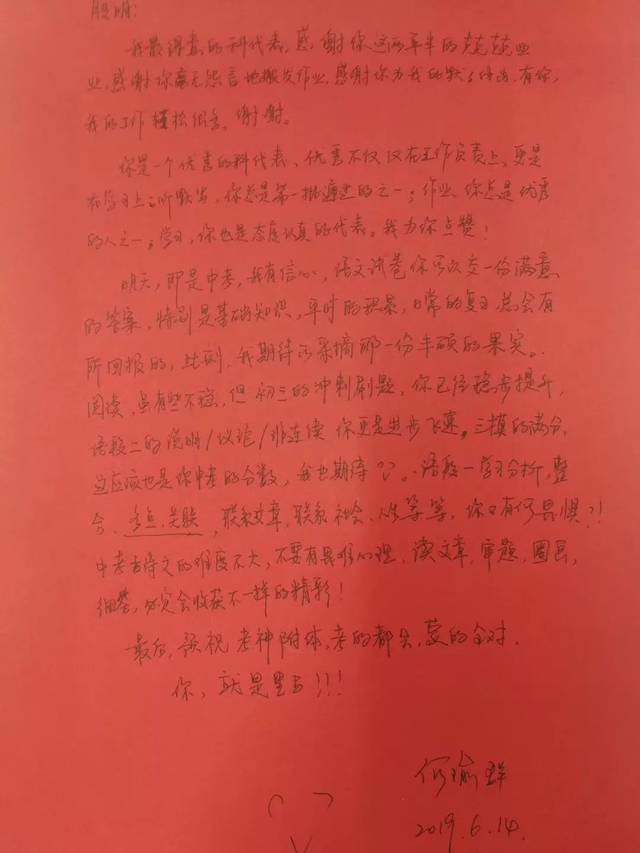 我最得意的科代表,感谢你这两年半的兢兢业
业,感谢你毫无怨言地搬发作业,感谢你为我的默默付出。有你,
我的工作轻松很多。谢谢。
你是一个优秀的科代表,优秀不仅仅在工作负责上,更是
在学习上;听默写,你总是第一批通过的之一;作业,你总是优秀
的人之一;学习,你也是态度认真的代表。我为你点赞!
明天,即是中考,我有信心,语文试卷你可以交一份满意
的答案,特别是基础知识,平时的积累,日常的复习总会有
所回报的,比例,我期待你采摘那一份丰硕的果实。
阅读,虽有些不稳,但初三的冲刺刷题,你已经稳步提升,
语段二的说明/议论/非连续你更是进步飞速。三模的满分,
这应该也是你中考的分数,我也期待。语段一学习分析,整
合、考点、关联,联系文章,联系社会、人生等等,你又有何畏惧?!
中考古诗文的难度不大,不要有畏难心理,读文章,审题,圈画,
细答,必定会收获不一样的精彩!
最后,预祝 考神附体,考的都会,蒙的全对。
你,就是黑马!!!
何瑜群
2019.6.14.